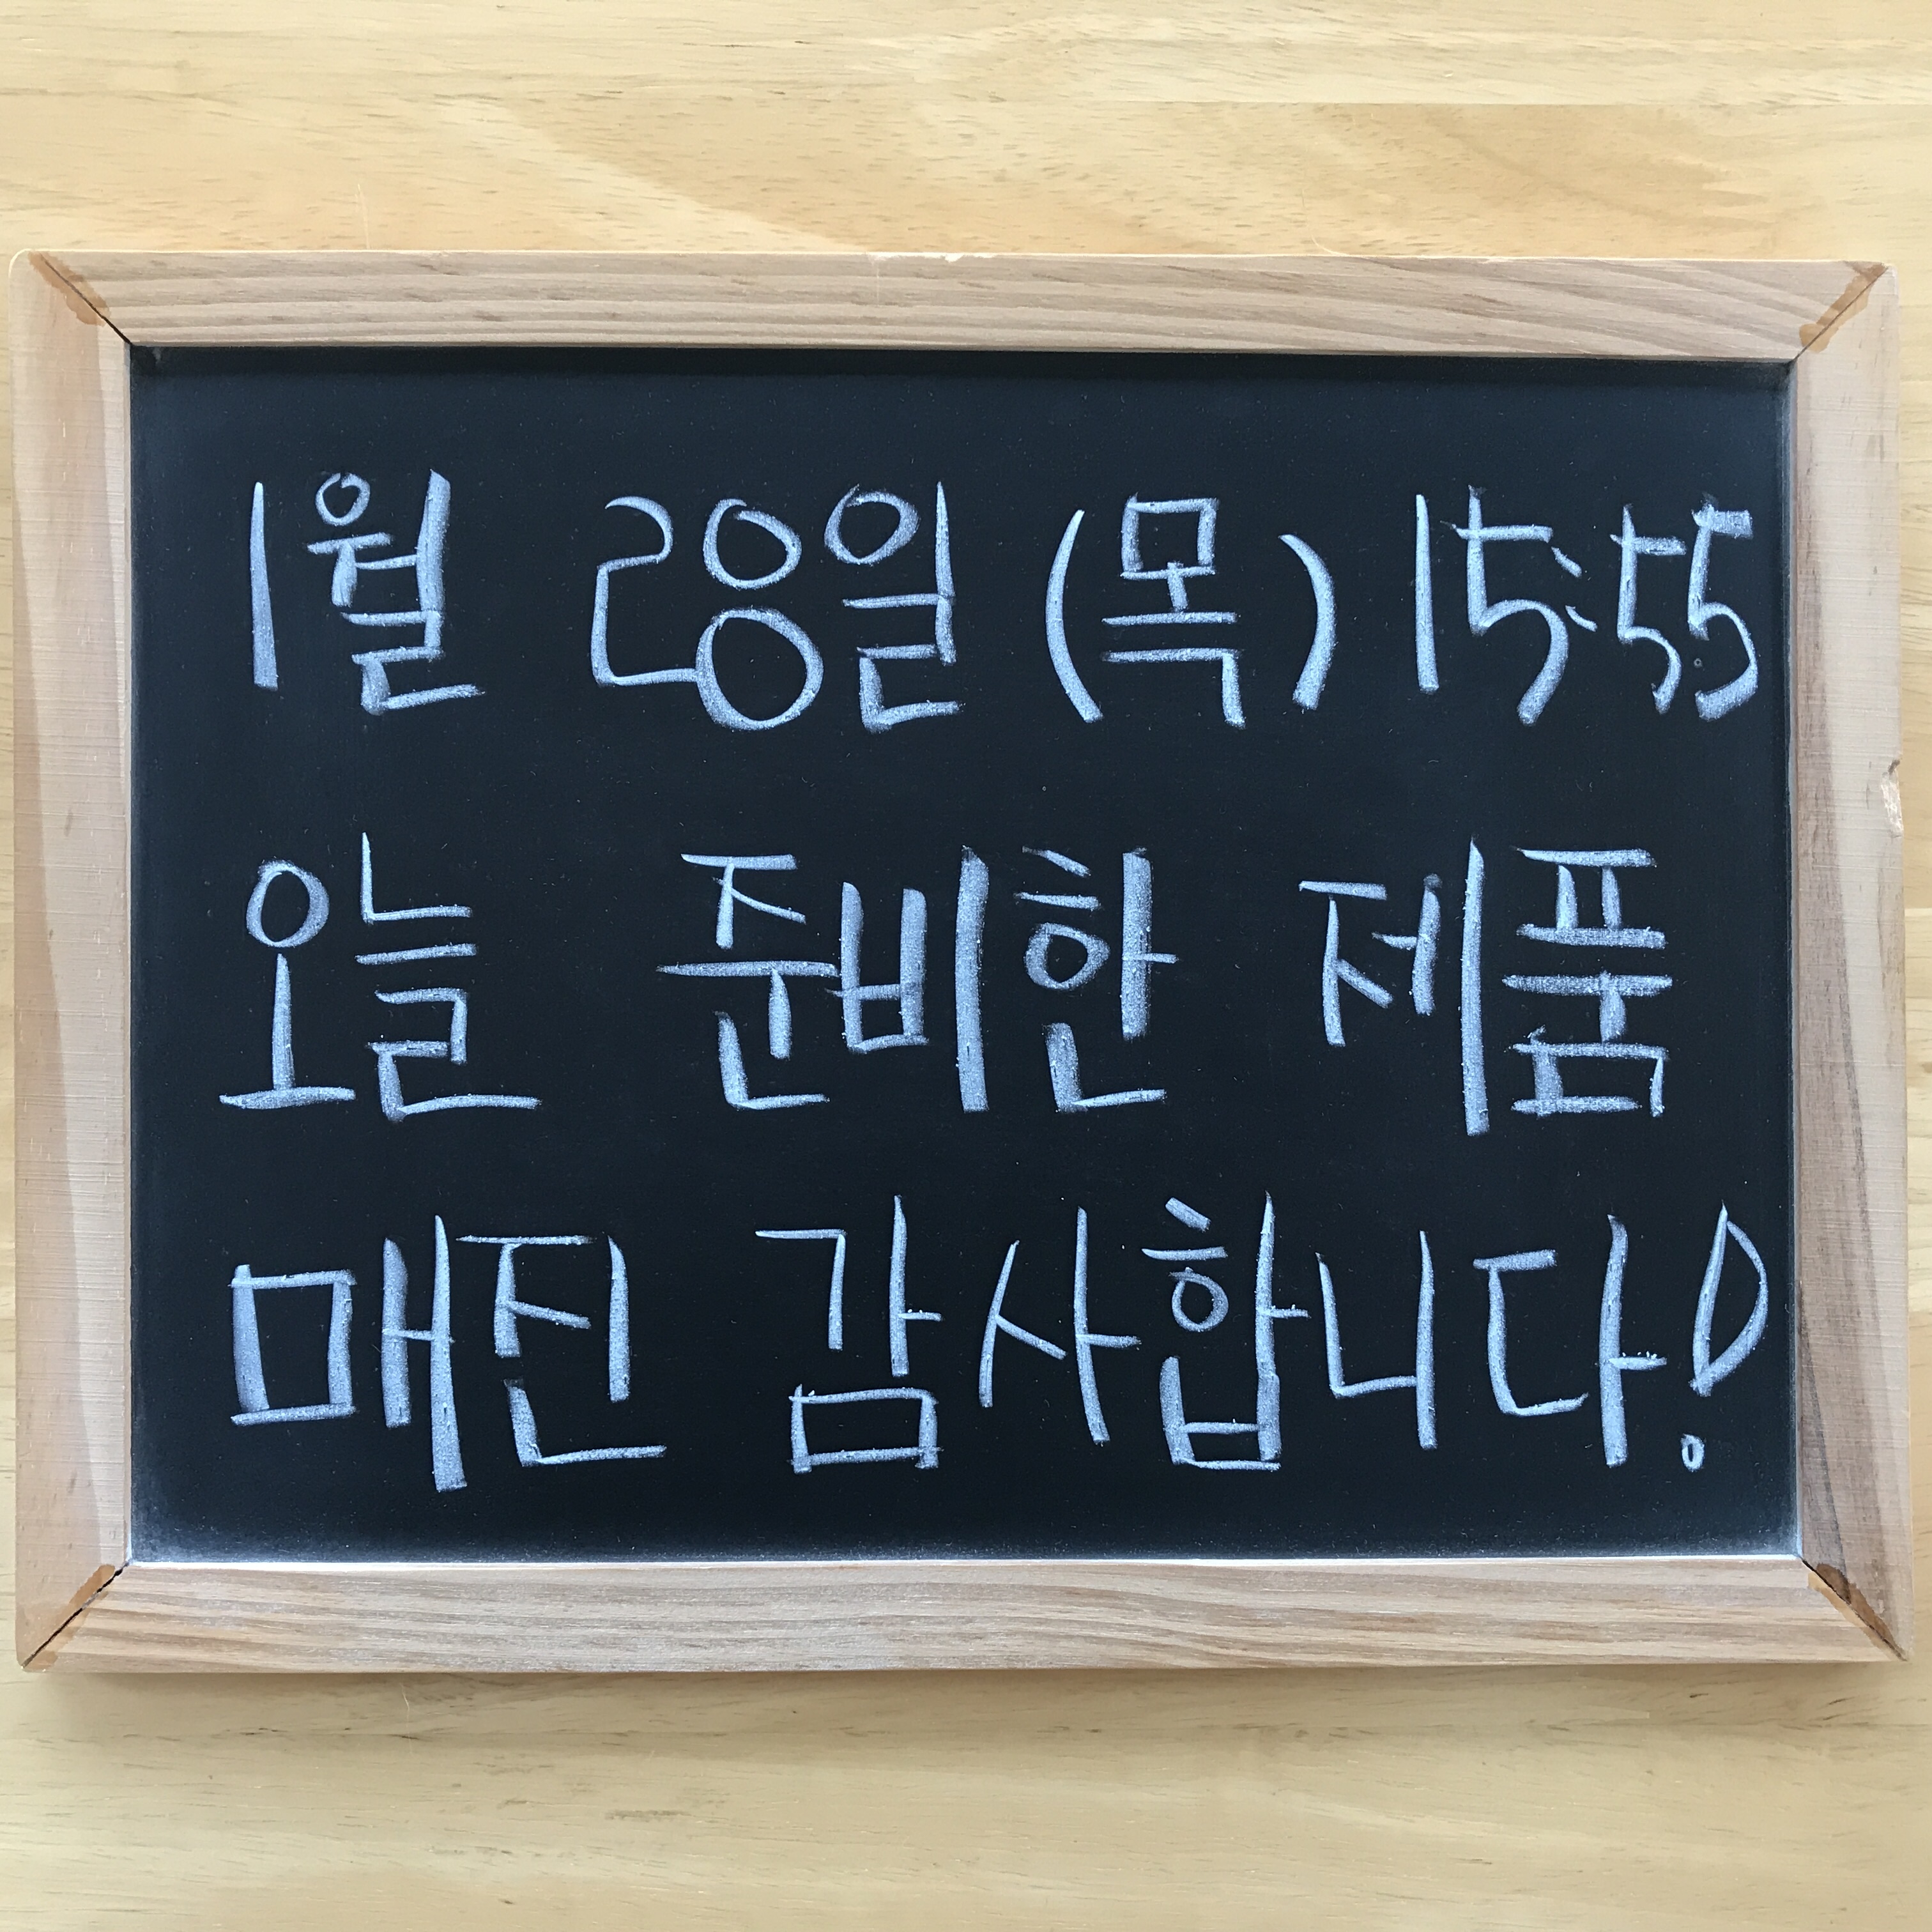 1월 28일 (목) 15:55
오늘 준비한 제품
매진 감사합니다!